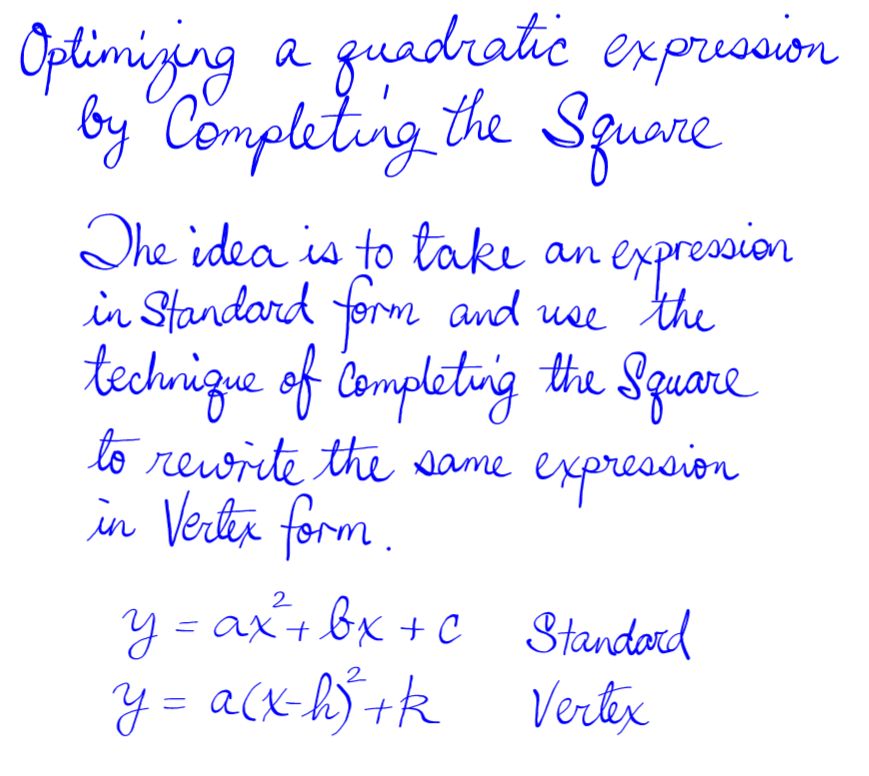 Optimizing a quadratic expression
by Completing the Square
The idea is to take an expression
in Standard form and use the
technique of Completing the Square
to rewrite the same expression
in Vertex form.
y = ax² + bx + c Standard
y = a(x-h)² + k Vertex